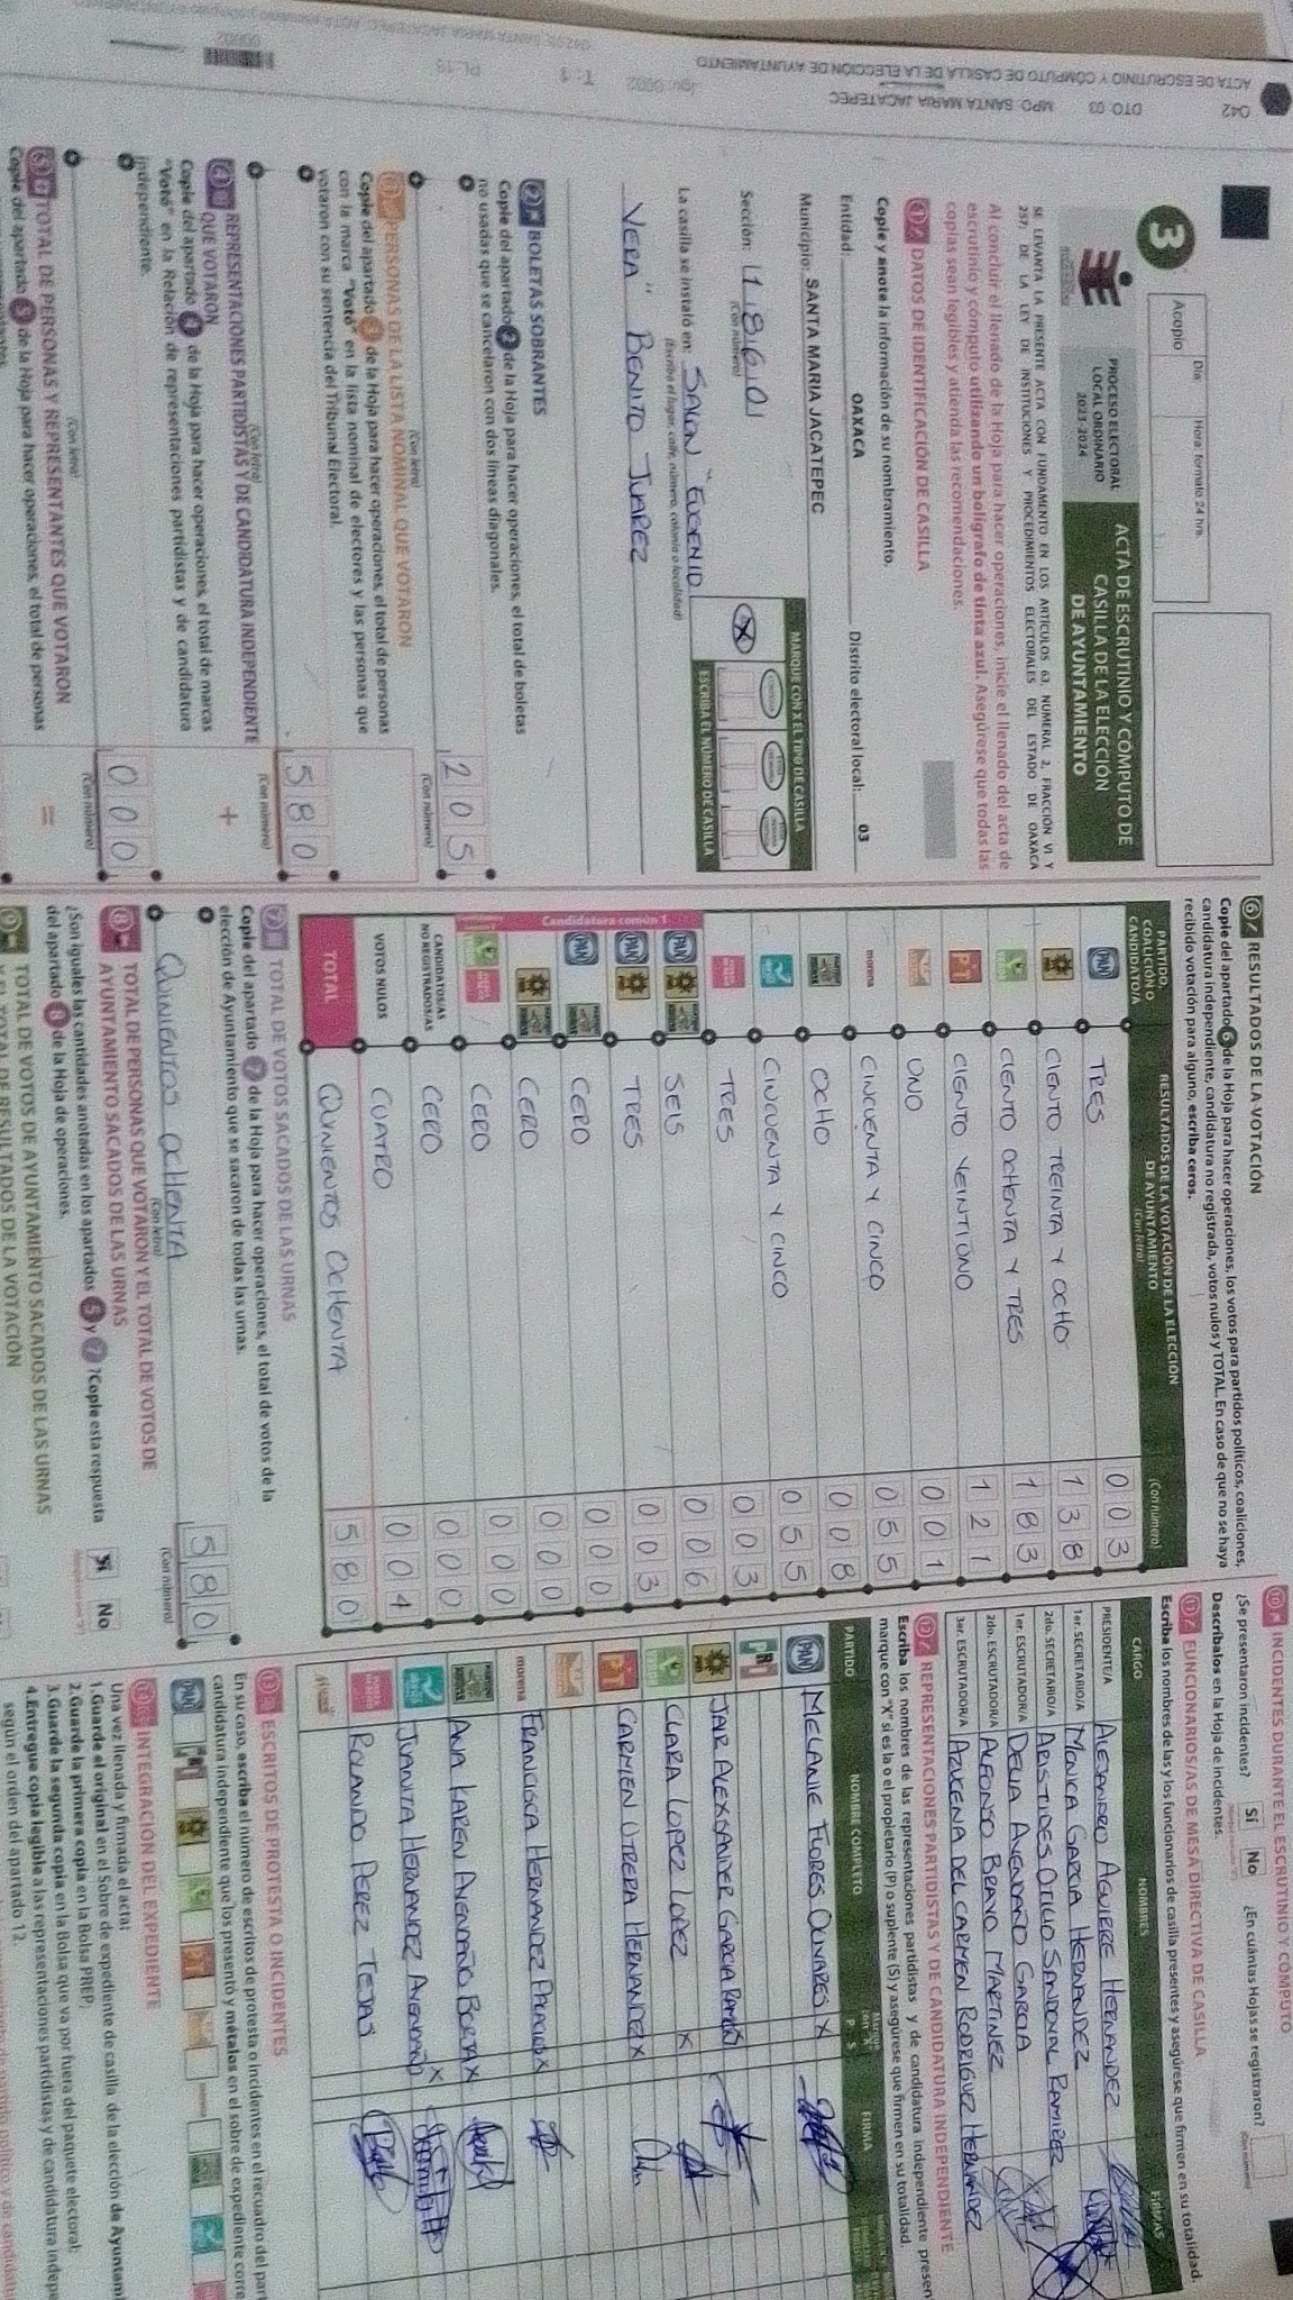 042 DTO: 03 MPO: SANTA MARIA JACATEPEC
ACTA DE ESCRUTINIO Y CÓMPUTO DE CASILLA DE LA ELECCIÓN DE AYUNTAMIENTO
3
Acopio
Día
Hora: formato 24 hrs.
PROCESO ELECTORAL
LOCAL ORDINARIO
2023-2024
ACTA DE ESCRUTINIO Y CÓMPUTO DE
CASILLA DE LA ELECCIÓN
DE AYUNTAMIENTO
SE LEVANTA LA PRESENTE ACTA CON FUNDAMENTO EN LOS ARTÍCULOS 63, NUMERAL 2, FRACCIÓN VI Y
257; DE LA LEY DE INSTITUCIONES Y PROCEDIMIENTOS ELECTORALES DEL ESTADO DE OAXACA
Al concluir el llenado de la Hoja para hacer operaciones, inicie el llenado del acta de
escrutinio y cómputo utilizando un bolígrafo de tinta azul. Asegúrese que todas las
copias sean legibles y atienda las recomendaciones.
1 DATOS DE IDENTIFICACIÓN DE CASILLA
Copie y anote la información de su nombramiento.
Entidad: OAXACA Distrito electoral local: 03
Municipio: SANTA MARIA JACATEPEC
Sección: 1 8 6 0
(Con número)
MARQUE CON X EL TIPO DE CASILLA
X
ESCRIBA EL NÚMERO DE CASILLA
La casilla se instaló en: SALON "EUGENIO
(Escriba el lugar, calle, número, colonia o localidad)
VERA" BENITO JUAREZ
2 BOLETAS SOBRANTES
Copie del apartado 2 de la Hoja para hacer operaciones, el total de boletas
no usadas que se cancelaron con dos líneas diagonales.
2 0 5
(Con letra) (Con número)
3 PERSONAS DE LA LISTA NOMINAL QUE VOTARON
Copie del apartado 3 de la Hoja para hacer operaciones, el total de personas
con la marca "Votó" en la lista nominal de electores y las personas que
votaron con su sentencia del Tribunal Electoral.
5 8 0
(Con letra) (Con número)
4 REPRESENTACIONES PARTIDISTAS Y DE CANDIDATURA INDEPENDIENTE
QUE VOTARON +
Copie del apartado 4 de la Hoja para hacer operaciones, el total de marcas
"Votó" en la Relación de representaciones partidistas y de candidatura
independiente.
0 0 0
(Con letra) (Con número)
5 TOTAL DE PERSONAS Y REPRESENTANTES QUE VOTARON =
Copie del apartado 5 de la Hoja para hacer operaciones, el total de personas
6 RESULTADOS DE LA VOTACIÓN
Copie del apartado 6 de la Hoja para hacer operaciones, los votos para partidos políticos, coaliciones,
candidatura independiente, candidatura no registrada, votos nulos y TOTAL. En caso de que no se haya
recibido votación para alguno, escriba ceros.
PARTIDO, COALICIÓN O CANDIDATO/A
RESULTADOS DE LA VOTACIÓN DE LA ELECCIÓN DE AYUNTAMIENTO
(Con letra) (Con número)
PAN TRES 0 0 3
CIENTO TREINTA Y OCHO 1 3 8
CIENTO OCHENTA Y TRES 1 8 3
PT CIENTO VEINTIUNO 1 2 1
UNO 0 0 1
morena CINCUENTA Y CINCO 0 5 5
OCHO 0 0 8
CINCUENTA Y CINCO 0 5 5
TRES 0 0 3
Candidatura común 1
PAN SEIS 0 0 6
PAN TRES 0 0 3
PAN CERO 0 0 0
CERO 0 0 0
CERO 0 0 0
CANDIDATOS/AS NO REGISTRADOS/AS CERO 0 0 0
VOTOS NULOS CUATRO 0 0 4
TOTAL QUINIENTOS OCHENTA 5 8 0
7 TOTAL DE VOTOS SACADOS DE LAS URNAS
Copie del apartado 7 de la Hoja para hacer operaciones, el total de votos de la
elección de Ayuntamiento que se sacaron de todas las urnas.
QUINIENTOS OCHENTA 5 8 0
(Con letra) (Con número)
8 TOTAL DE PERSONAS QUE VOTARON Y EL TOTAL DE VOTOS DE
AYUNTAMIENTO SACADOS DE LAS URNAS
¿Son iguales las cantidades anotadas en los apartados 5 y 7? Copie esta respuesta
del apartado 8 de la Hoja de operaciones.
Sí No
9 TOTAL DE VOTOS DE AYUNTAMIENTO SACADOS DE LAS URNAS
Y EL TOTAL DE RESULTADOS DE LA VOTACIÓN
10 INCIDENTES DURANTE EL ESCRUTINIO Y CÓMPUTO
¿Se presentaron incidentes? Sí No ¿En cuántas Hojas se registraron?
(Con número)
Descríbalos en la Hoja de incidentes.
11 FUNCIONARIOS/AS DE MESA DIRECTIVA DE CASILLA
Escriba los nombres de las y los funcionarios de casilla presentes y asegúrese que firmen en su totalidad.
CARGO NOMBRES FIRMAS
PRESIDENTE/A ALEJANDRO AGUIRRE HERNANDEZ
1er. SECRETARIO/A MONICA GARCIA HERNANDEZ
2do. SECRETARIO/A ARISTIDES OTILIO SANDOVAL RAMIREZ
1er. ESCRUTADOR/A DELIA AVENDAÑO GARCIA
2do. ESCRUTADOR/A ALFONSO BRAVO MARTINEZ
3er. ESCRUTADOR/A AZUCENA DEL CARMEN RODRIGUEZ HERNANDEZ
12 REPRESENTACIONES PARTIDISTAS Y DE CANDIDATURA INDEPENDIENTE
Escriba los nombres de las representaciones partidistas y de candidatura independiente presen
marque con "X" si es la o el propietario (P) o suplente (S) y asegúrese que firmen en su totalidad.
PARTIDO NOMBRE COMPLETO P S FIRMA
PAN MELANIE FLORES OLIVARES X
PRI
JAIR ALEXSANDER GARCIA RAMOS
CLARA LOPEZ LOPEZ X
PT CARMEN UTRERA HERNANDEZ X
morena FRANCISCA HERNANDEZ PALACIOS X
ANA KAREN AVENDAÑO BORJA X
JUANITA HERNANDEZ AVENDAÑO X
ROLANDO PEREZ TEJAS
13 ESCRITOS DE PROTESTA O INCIDENTES
En su caso, escriba el número de escritos de protesta o incidentes en el recuadro del par
candidatura independiente que los presentó y métalos en el sobre de expediente corre
PAN
14 INTEGRACIÓN DEL EXPEDIENTE
Una vez llenada y firmada el acta:
1.Guarde el original en el Sobre de expediente de casilla de la elección de Ayuntami
2.Guarde la primera copia en la Bolsa PREP;
3.Guarde la segunda copia en la Bolsa que va por fuera del paquete electoral;
4.Entregue copia legible a las representaciones partidistas y de candidatura indepe
según el orden del apartado 12.